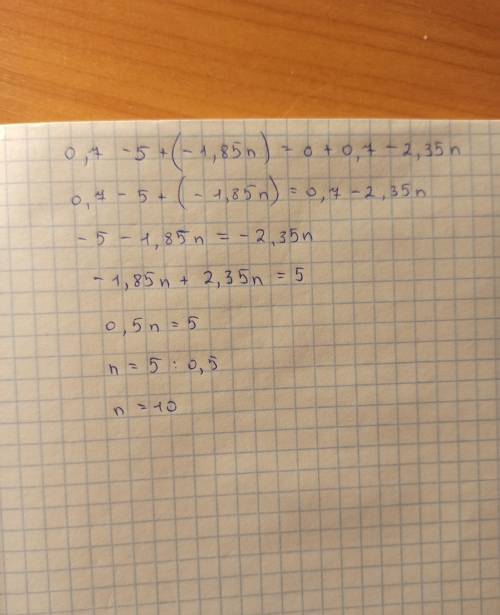 0,7 - 5 + (- 1,85n) = 0 + 0,7 - 2,35n
0,7 - 5 + (- 1,85n) = 0,7 - 2,35n
- 5 - 1,85n = - 2,35n
- 1,85n + 2,35n = 5
0,5n = 5
n = 5 : 0,5
n = 10